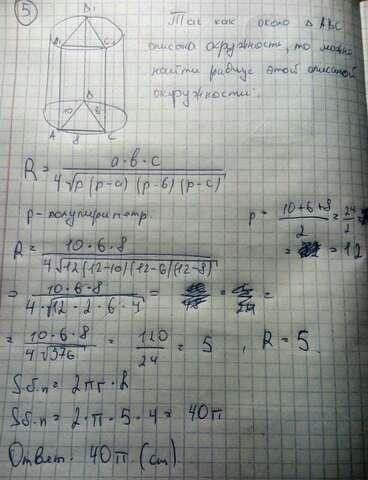 5
B₁
A₁ C₁
10 B 6
A 8 C
Так как около Δ ABC
описана окружность, то можно
найти радиус этой описаной
окружности:
R = a·b·c / 4√p(p-a)(p-b)(p-c)
p - полупериметр.
p = (10+6+8)/2 = 24/2 =
= 12
R = 10·6·8 / 4√12(12-10)(12-6)(12-8) =
= 10·6·8 / 4·√12·2·6·4 = =
= 10·6·8 / 4√576 = 120/24 = 5, R = 5.
Sб.п = 2πr·h
Sб.п = 2·π·5·4 = 40π
Ответ: 40π (см)